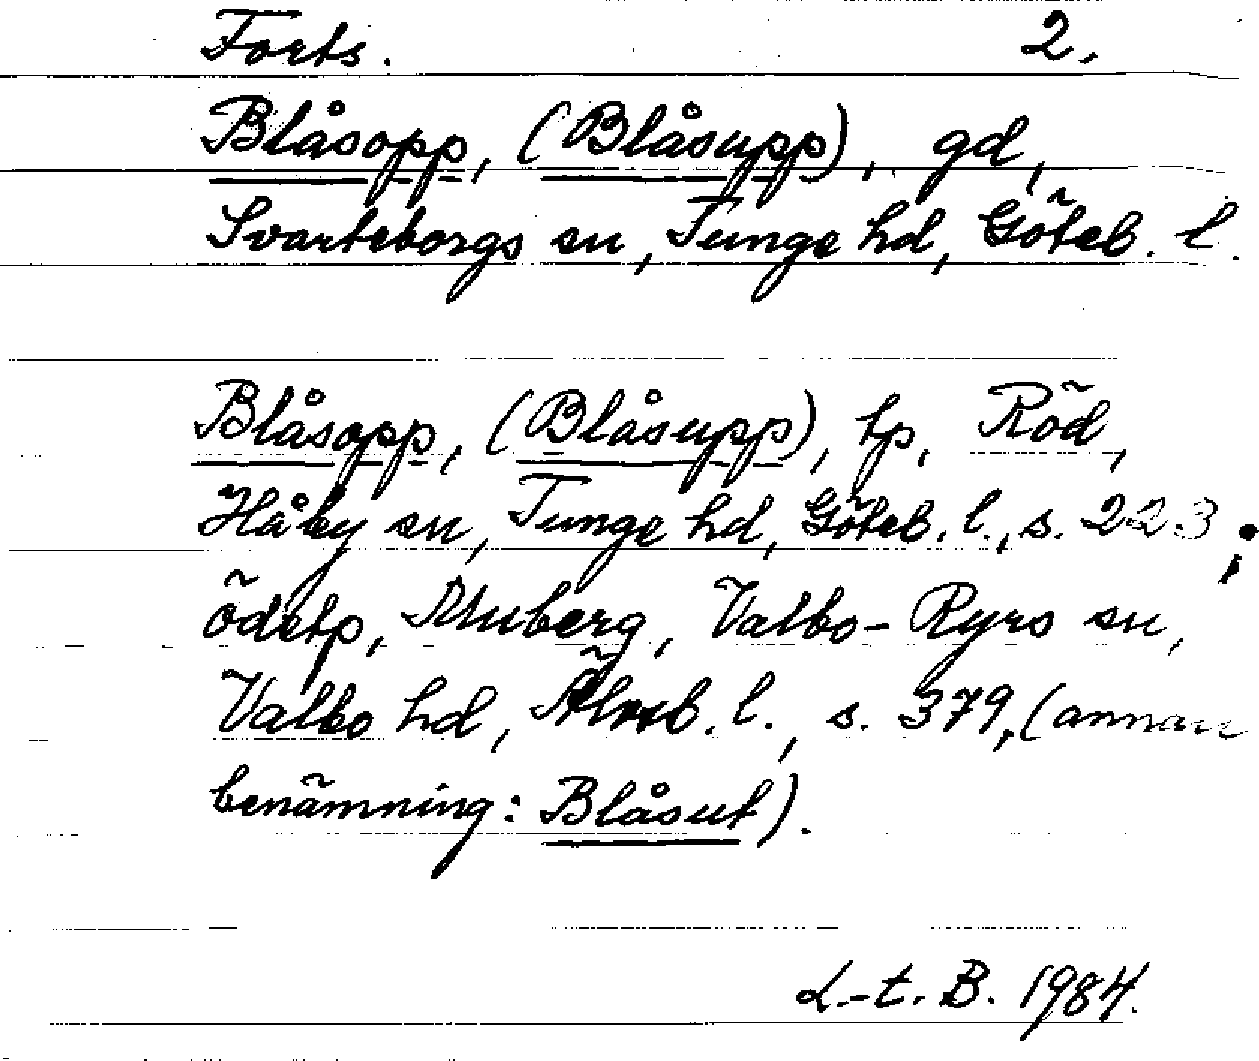 Forts. 2.
Blåsopp, (Blåsupp), gd,
Svarteborgs sn, Tunge hd, Göteb. l.
Blåsopp, (Blåsupp), tp, Röd,
Håby sn, Tunge hd, Göteb. l., s. 223;
ödetp, Muberg, Valbo-Ryrs sn,
Valbo hd, Älvsb. l., s. 379, (annan
benämning: Blåsut).
L-t. B. 1984.